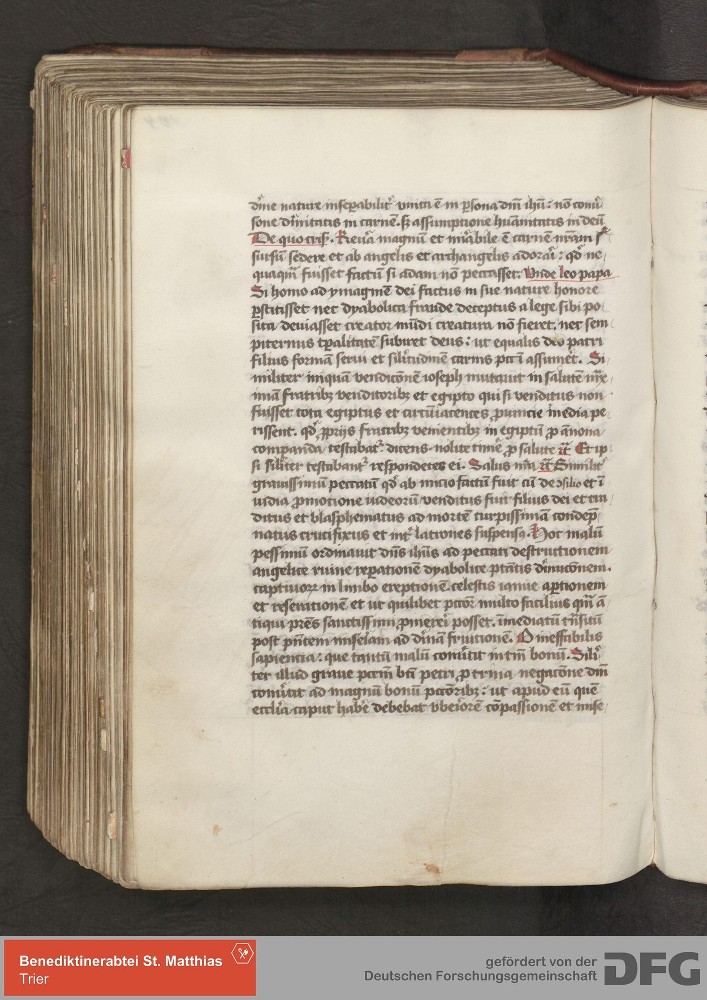 dine nature inseparabilit unita e in psona dni ihu: no comi
sone divinitatis in carne. sz assumptione huanitatis in deu
De quo cris. Revera magnu et mirabile e carne nram
sursu sedere et ab angelis et archangelis adorari: qd ne
quaqm fuisset factu si adam no peccasset. Unde leo papa
Si homo ad ymagine dei factus in sue nature honore
pstitisset nec dyabolica fraude deceptus a lege sibi po
sita deviasset creator mundi creatura no fieret. nec sem
piternus tpalitate subiret deus: ut equalis deo patri
filius forma servi et silitudine carnis pcti assumet. Si
militer iniqua vendicone ioseph mutavit in salute
mia fratribz venditoribz et egipto qui si venditus non
fuisset tota egiptus et circuiacentes puincie inedia pe
rissent. qd pprijs fratribz venientibz in egiptu p anona
companda testabat. dicens. nolite time p salute Et ip
si silit testabant respondetes ei. Salus nra Similit
gravissimu peccatu qd ab inicio factu fuit cu de consilio et i
vidia pmotione iudeoru venditus fuit filius dei et tra
ditus et blasphematus ad morte turpissima condep
natus crucifixus et int latrones suspensus. Hoc malu
pessimu ordinavit dns ihus ad peccati destructionem
angelice ruine repatione dyabolice ptatis diminucione.
captivorz in limbo ereptione. celestis ianue aptionem
et reseratione et ut quilibet pctor multo facilius qm a
tiqui pres sanctissimi pmereri posset. imediatu trnsitu
post pntem miselam ad divina fruitione. O ineffabilis
sapiencia: que tantu malu convtit in tm bonu. Sili
ter illud grave pctm bti petri, p trina negacone dni
convtit ad magnu bonu pctoribz: ut apud eu que
ecclia caput habe debebat ubiore copassione et mise
Benediktinerabtei St. Matthias
Trier
gefördert von der
Deutschen Forschungsgemeinschaft
DFG